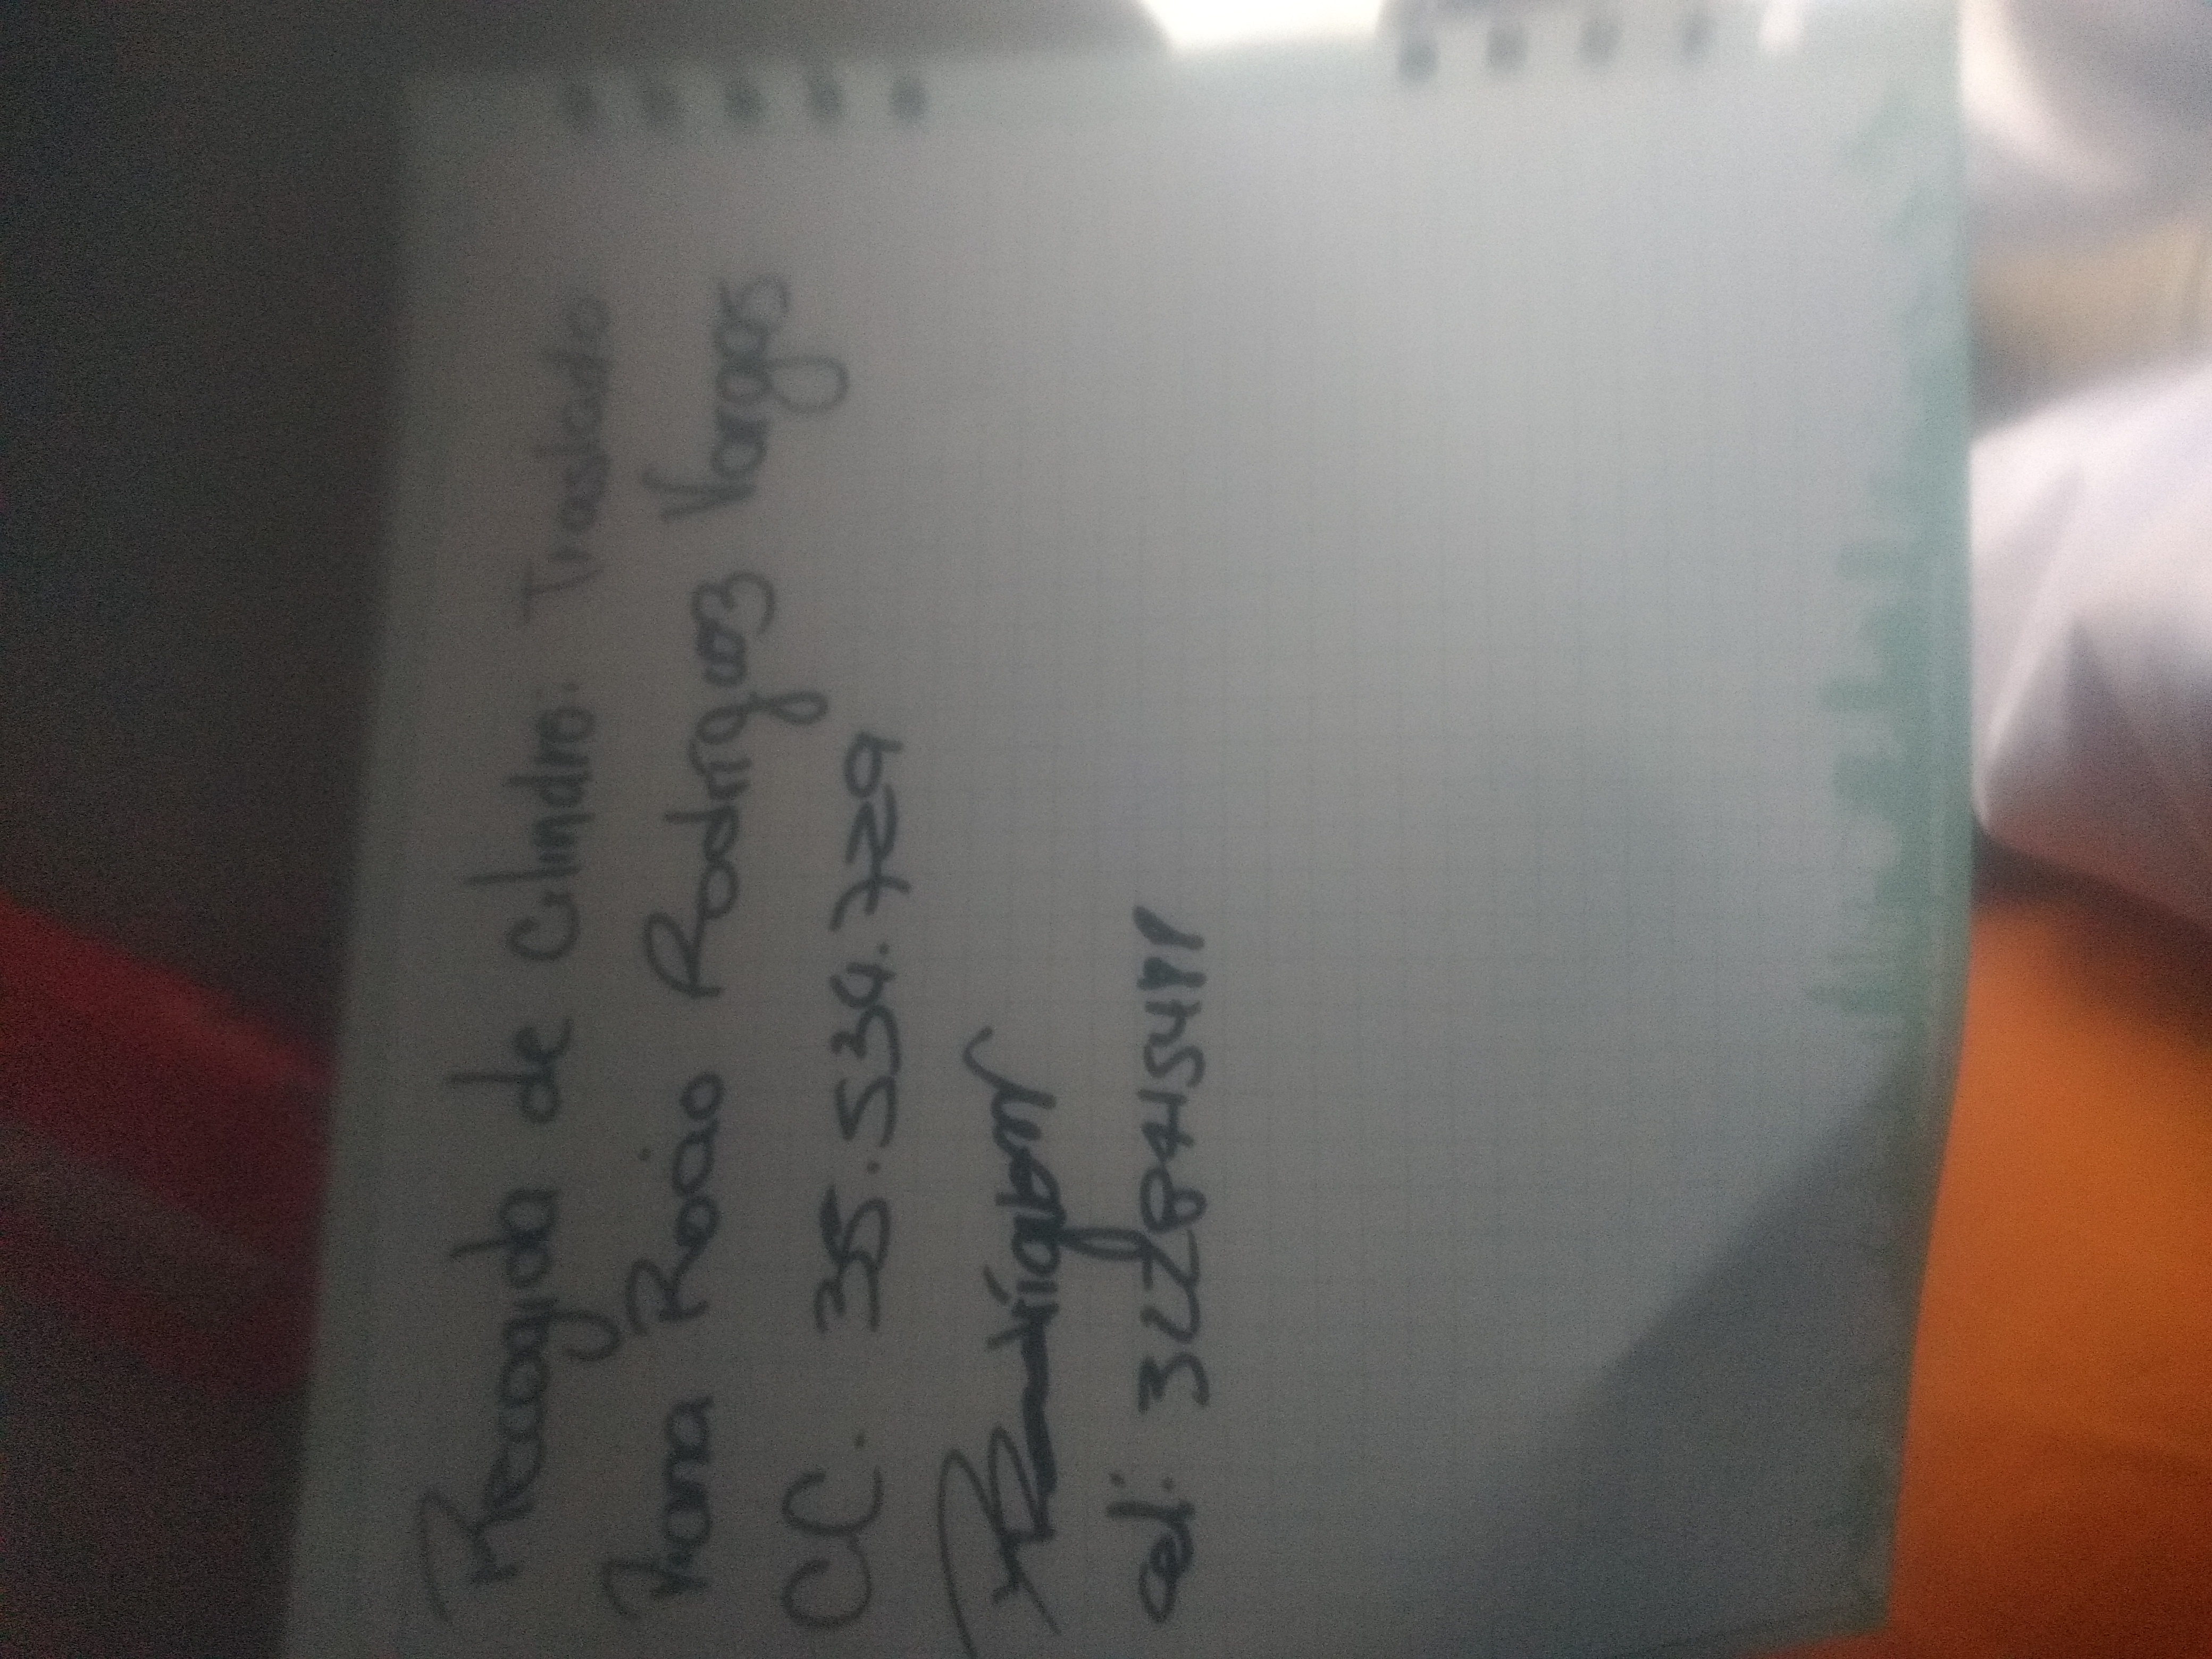 Recogida de Cilindro: Traslado
Rocio Rodriguez Vargas
CC. 35.534.729
cel: 3228445411